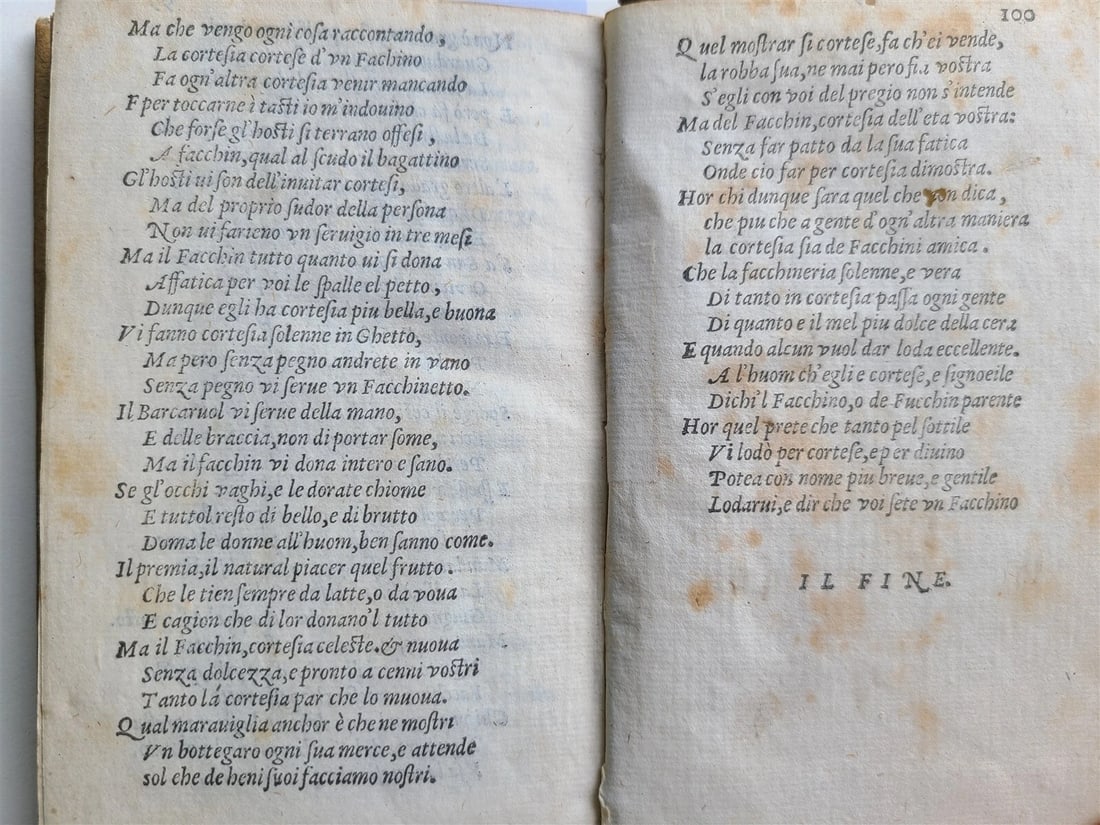 Ma che vengo ogni cosa raccontando,
La cortesia cortese d'vn Fachino
Fa ogn'altra cortesia venir mancando
E per toccarne i tasti io m'indouino
Che forse gl'hosti si terrano offesi,
A facchin, qual al scudo il bagattino
Gl'hosti ui son dell'inuitar cortesi,
Ma del proprio sudor della persona
Non ui farieno vn seruigio in tre mesi
Ma il Facchin tutto quanto ui si dona
Affatica per voi le spalle el petto,
Dunque egli ha cortesia piu bella, e buona
Vi fanno cortesia solenne in Ghetto,
Ma pero senza pegno andrete in vano
Senza pegno vi serue vn Facchinetto.
Il Barcaruol vi serue della mano,
E delle braccia, non di portar some,
Ma il facchin vi dona intero e sano.
Se gl'occhi vaghi, e le dorate chiome
E tuttol resto di bello, e di brutto
Doma le donne all'huom, ben sanno come.
Il premia, il natural piacer quel frutto.
Che le tien sempre da latte, o da voua
E cagion che di lor donano'l tutto
Ma il Facchin, cortesia celeste. & nuoua
Senza dolcezza, e pronto a cenni vostri
Tanto lá cortesia par che lo muoua.
Qual marauiglia anchor è che ne mostri
Vn bottegaro ogni sua merce, e attende
sol che de beni suoi facciamo nostri.
100
Quel mostrar si cortese, fa ch'ei vende,
la robba sua, ne mai pero fia vostra
S'egli con voi del pregio non s'intende
Ma del Facchin, cortesia dell'eta vostra:
Senza far patto da la sua fatica
Onde cio far per cortesia dimostra.
Hor chi dunque sara quel che non dica,
che piu che a gente d'ogn'altra maniera
la cortesia sia de Facchini amica.
Che la facchineria solenne, e vera
Di tanto in cortesia passa ogni gente
Di quanto e il mel piu dolce della cera
E quando alcun vuol dar loda eccellente.
A l'huom ch'egli e cortese, e signoeile
Dichi'l Facchino, o de Facchin parente
Hor quel prete che tanto pel sottile
Vi lodò per cortese, e per diuino
Potea con nome piu breue, e gentile
Lodarui, e dir che voi sete vn Facchino
IL FINE.